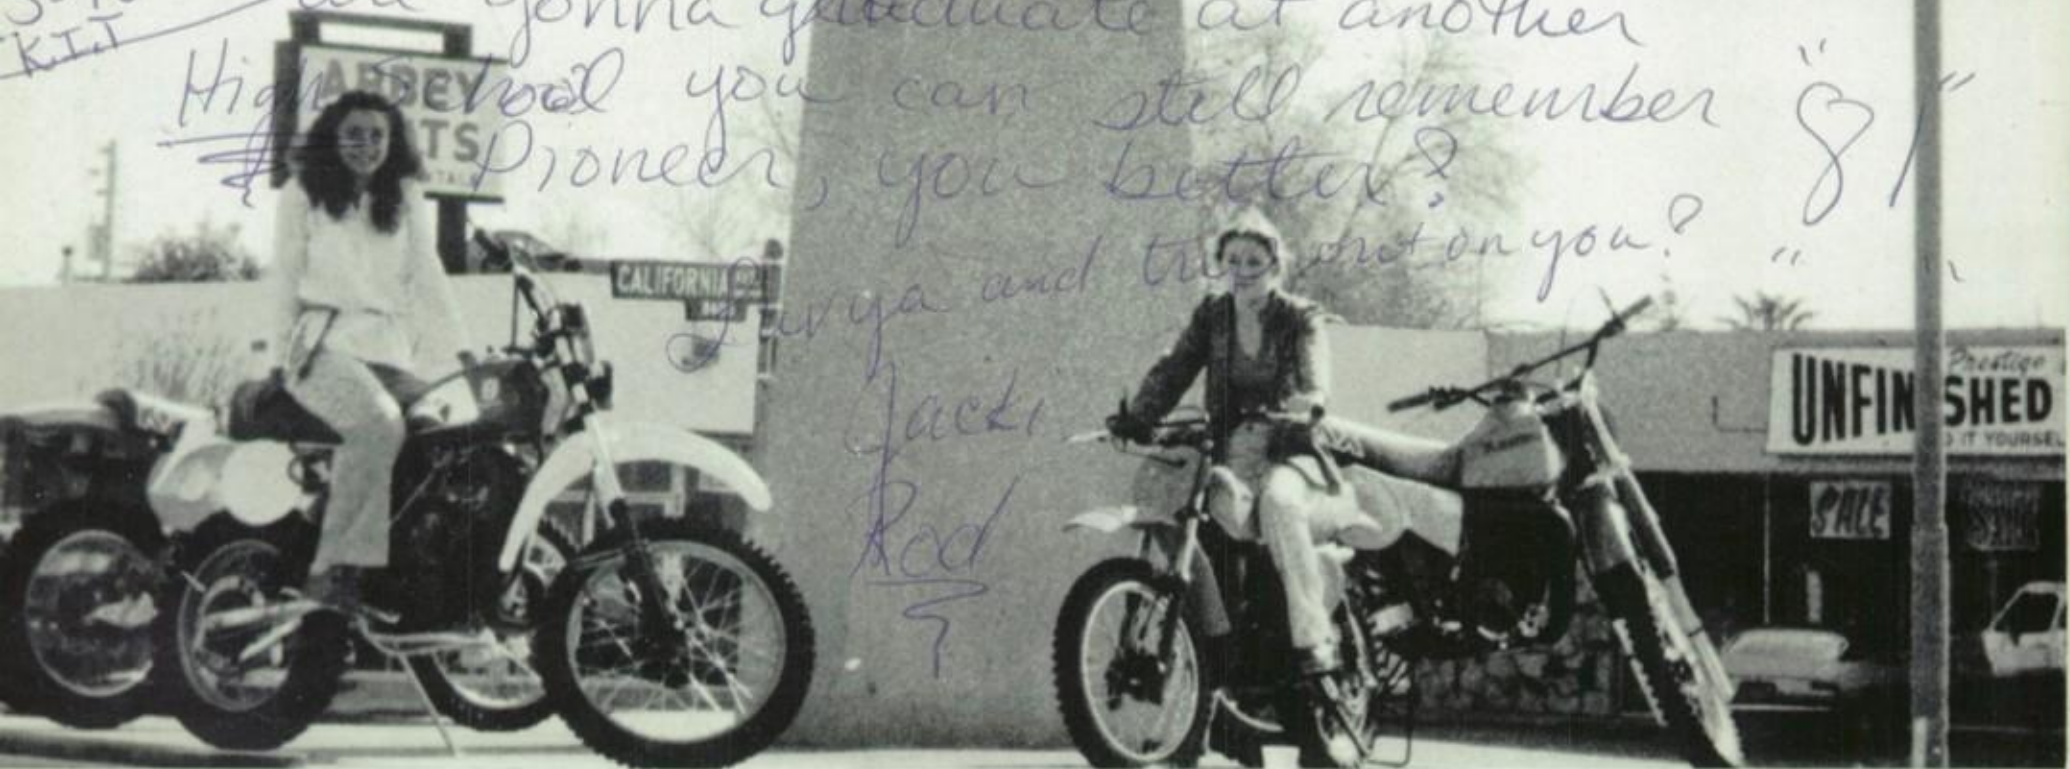 K.I.T
gonna graduate at another
High School you can still remember
Pioneer, you better?
Luv ya and on you?
Jacki
Rod
"81"
ABBEY
TS
CALIFORNIA AVE
Prestige
UNFINISHED
DO IT YOURSEL
SALE